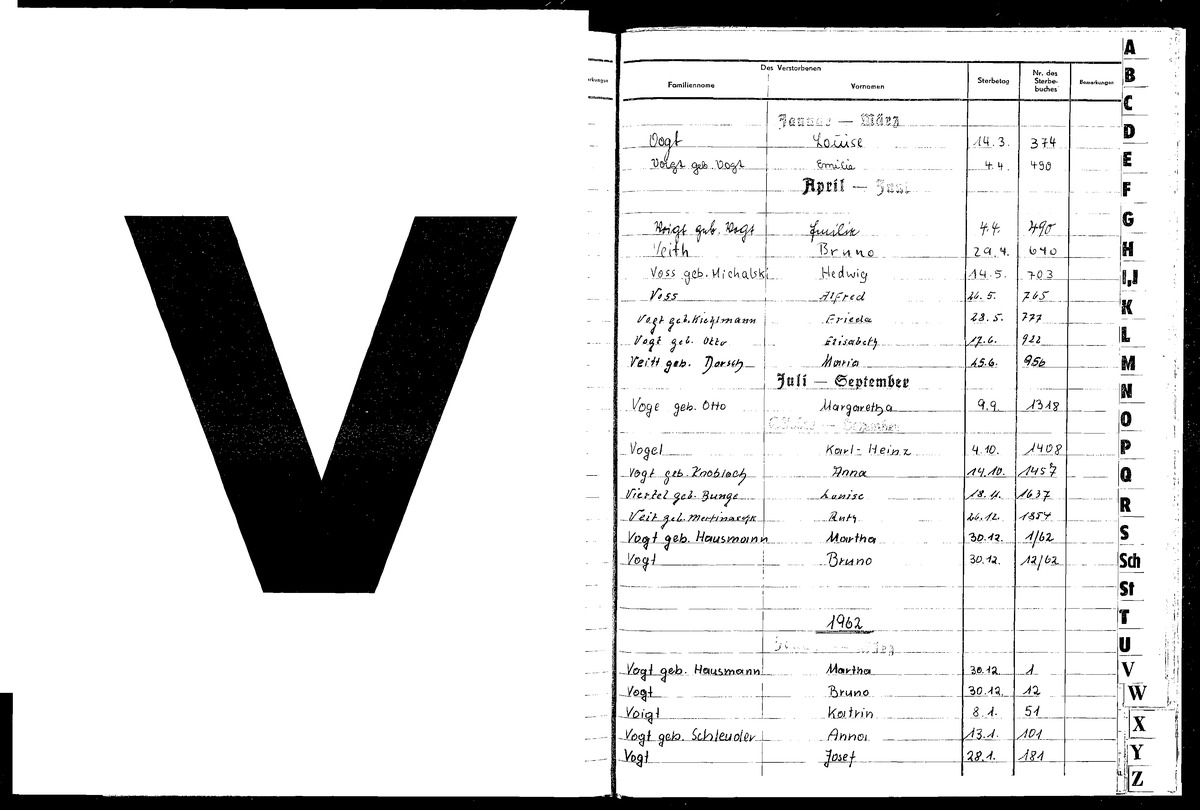 V
Des Verstorbenen
Familienname Vornamen Sterbetag Nr. des Sterbe-buches Bemerkungen
Januar — März
Vogt Louise 14.3. 374
Voigt geb. Vogt Emilie 4.4. 490
April — Juni
Voigt geb. Vogt Emilie 4.4. 490
Veith Bruno 29.4. 640
Voss geb. Michalski Hedwig 14.5. 703
Voss Alfred 26.5. 765
Vogt geb. Kichlmann Frieda 28.5. 777
Vogt geb. Otto Elisabeth 17.6. 922
Veitt geb. Dorsch Maria 25.6. 956
Juli — September
Voge geb. Otto Margaretha 9.9. 1318
Oktober — Dezember
Vogel Karl-Heinz 4.10. 1408
Vogt geb. Knobloch Anna 14.10. 1457
Viertel geb. Bunge Louise 18.11. 1637
Veit geb. Ruth 26.12. 1854
Vogt geb. Hausmann Martha 30.12. 1/62
Vogt Bruno 30.12. 12/62
1962
Vogt geb. Hausmann Martha 30.12. 1
Vogt Bruno 30.12. 12
Voigt Katrin 8.1. 51
Vogt geb. Schleuder Anna 13.1. 101
Vogt Josef 28.1. 181
A
B
C
D
E
F
G
H
I,J
K
L
M
N
O
P
Q
R
S
Sch
St
T
U
V
W
X
Y
Z